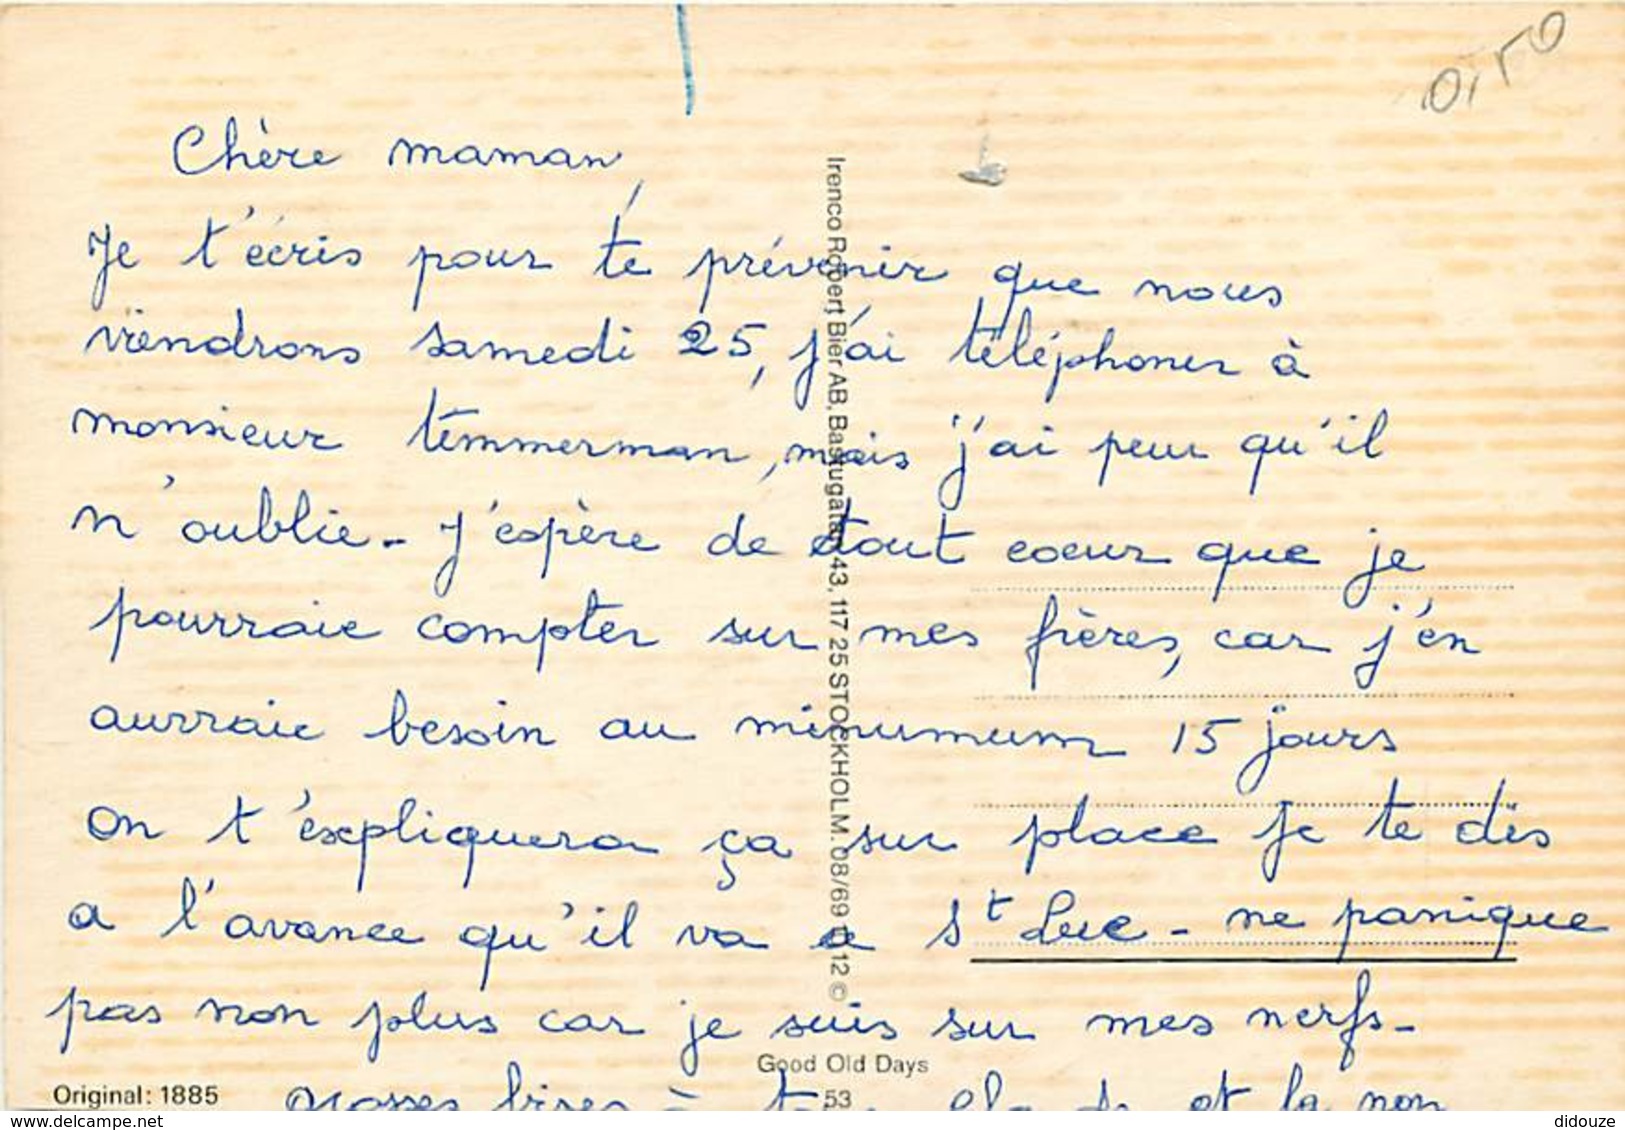 Chère maman,
Je t'écris pour te prévenir que nous
viendrons samedi 25, j'ai téléphoner à
monsieur temmerman, mais j'ai peur qu'il
n'oublie - J'espère de tout coeur que je
pourraie compter sur mes frères, car j'en
aurraie besoin au minumum 15 jours
On t'expliquera ça sur place je te dis
a l'avance qu'il va a St Luc - ne panique
pas non plus car je suis sur mes nerfs -
grosses bises à et la non
Irenco Robert Bier AB, Bastugatan 43, 117 25 STOCKHOLM. 08/69 12 ©
Good Old Days
53
Original: 1885
https://www.delcampe.net
didouze